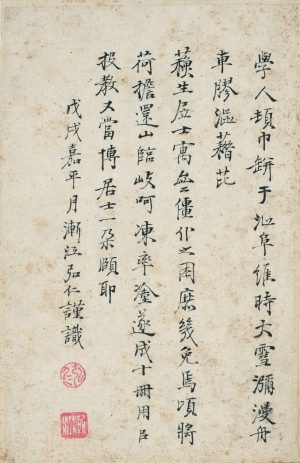 學人頓巾缾于江阜維時大雪瀰漫舟
車膠澁藉芘
蘋生居士寓盦僵仆之困庶幾免焉頃將
荷擔還山臨岐呵凍率塗遂成十冊用㠯
投教大當博居士一朵頤耶
戊戌嘉平月漸江弘仁謹識